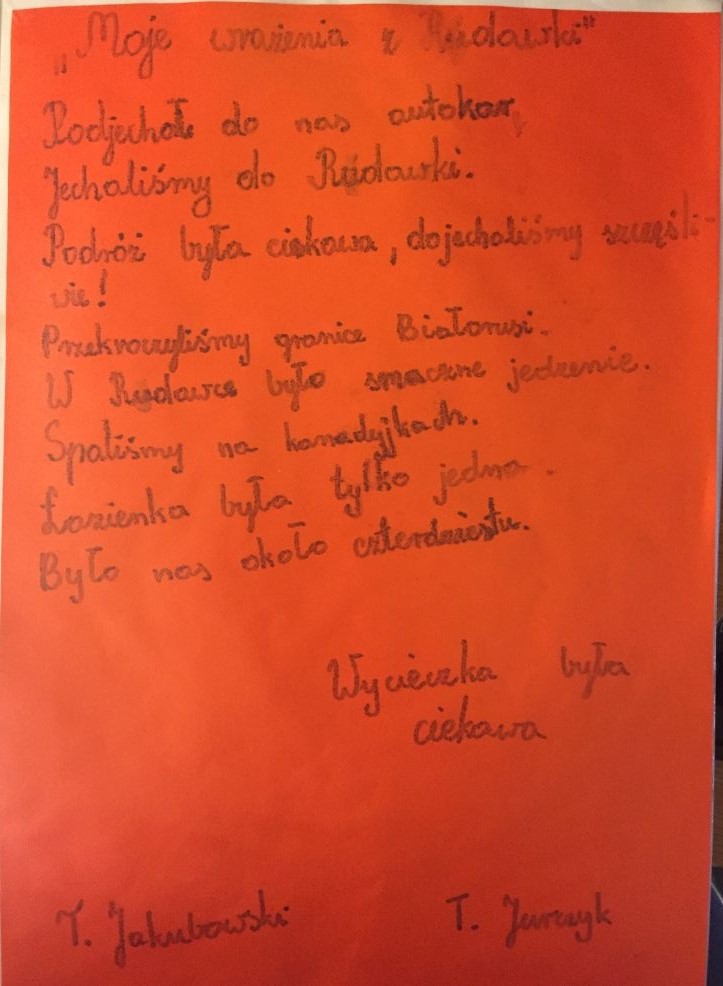 „Moje wrażenia z Rudawki"
Podjechał do nas autokar,
Jechaliśmy do Rudawki.
Podróż była ciekawa, dojechaliśmy szczęśli-
wie!
Przekroczyliśmy granice Białorusi.
W Rudawce było smaczne jedzenie.
Spaliśmy na kanadyjkach.
Łazienka była tylko jedna.
Było nas około czterdziestu.
Wycieczka była
ciekawa
T. Jakubowski T. Jurczyk